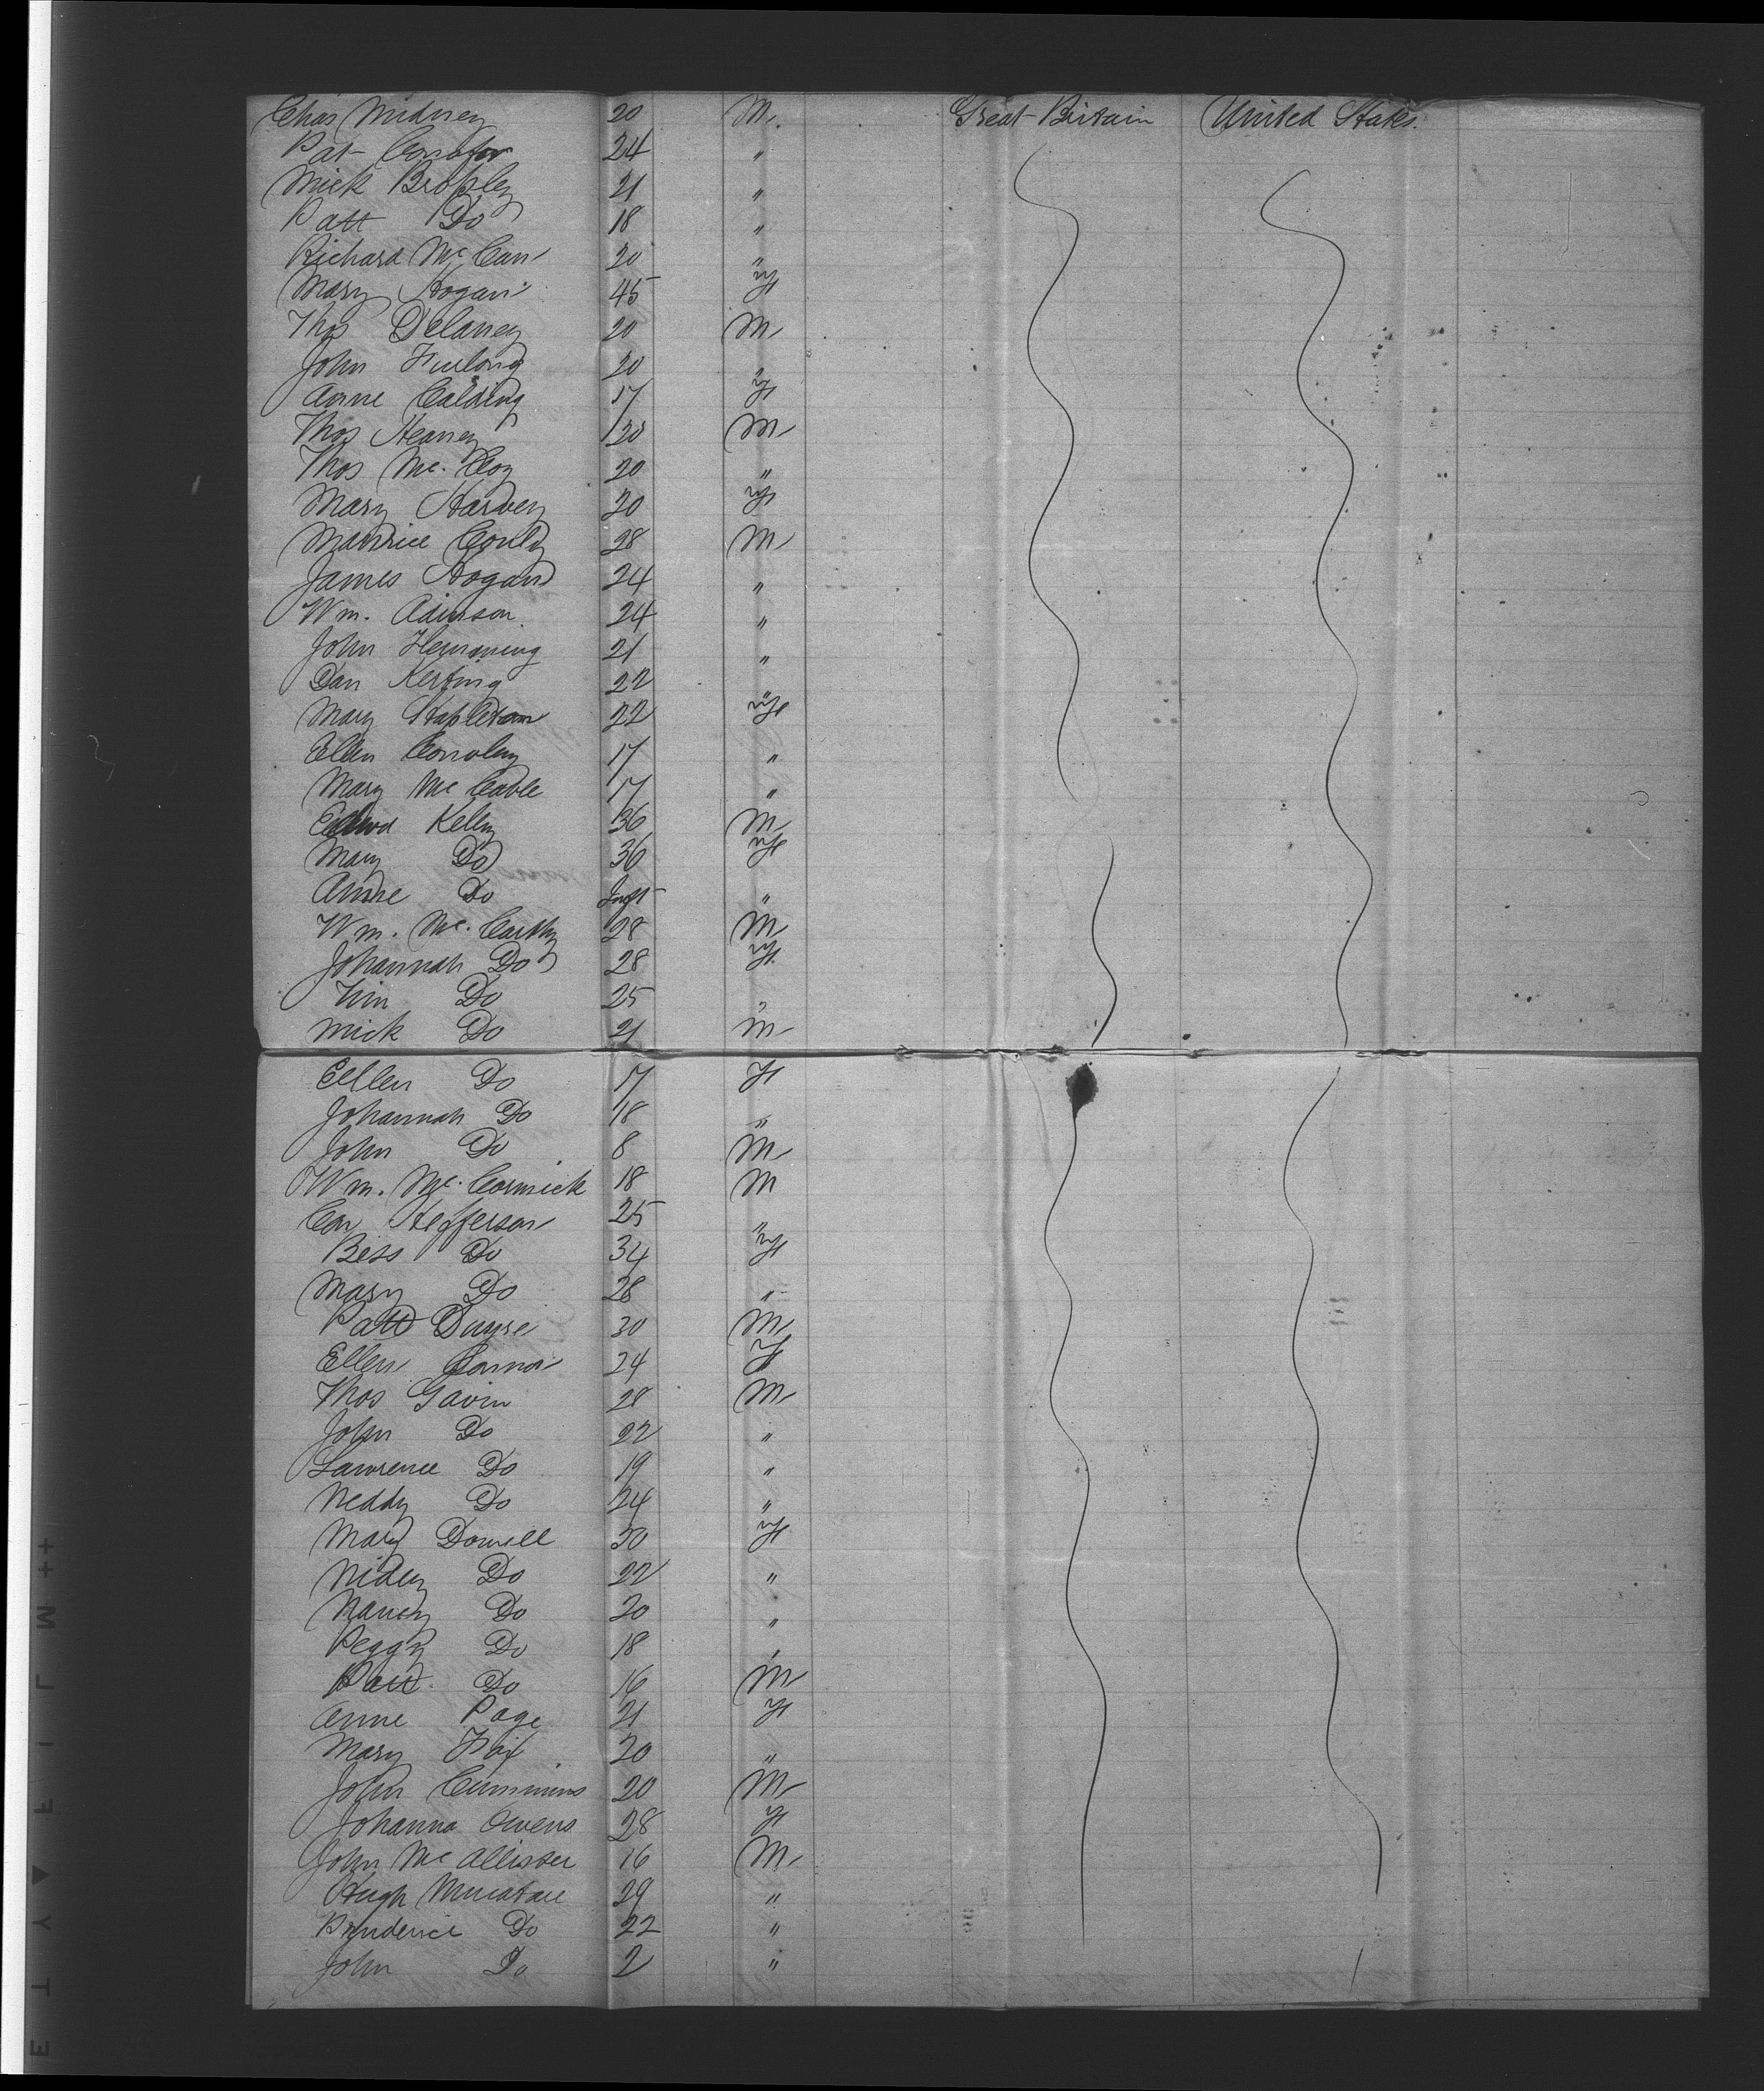 Chas Midney 20 M. Great Britain United States.
Pat Connor 24 "
Mick Brophy 21 "
Patt Do 18 "
Richard Mc Can 20 "
Mary Hogan 45 F
Thos Delaney 20 M
John Furlong 20 "
Anne Calding 17 F
Thos Heaney 20 M
Thos Mc. Coy 20 "
Mary Harvey 20 F
Maurice Conly 28 M
James Hogan 24 "
Wm. Adinson 24 "
John Hemming 21 "
Dan Kerting 22 "
Mary Stapleton 22 F
Ellen Conoley 17 "
Mary Mc Cable 17 "
Edwd Kelly 36 M
Mary Do 36 F
Anne Do Inft "
Wm. Mc. Carthy 28 M
Johannah Do 28 F
Tim Do 25 "
Mick Do 21 M
Ellen Do 17 F
Johannah Do 18 "
John Do 8 M
Wm. Mc. Cormick 18 M
Con Hefferson 25 "
Bess Do 34 F
Mary Do 28 "
Patt Dwyre 30 M
Ellen Connor 24 F
Thos Gavin 28 M
John Do 22 "
Lawrence Do 19 "
Neddy Do 24 "
Mary Dowell 30 F
Do 22 "
Nancy Do 20 "
Peggy Do 18 "
Patt Do 16 M
Anne Page 21 F
Mary Fox 20 "
John Cummins 20 M
Johanna Owens 28 F
John Mc Allister 16 M
Hugh 29 "
Prudence Do 22 "
John Do 2 "
SAFETY FILM